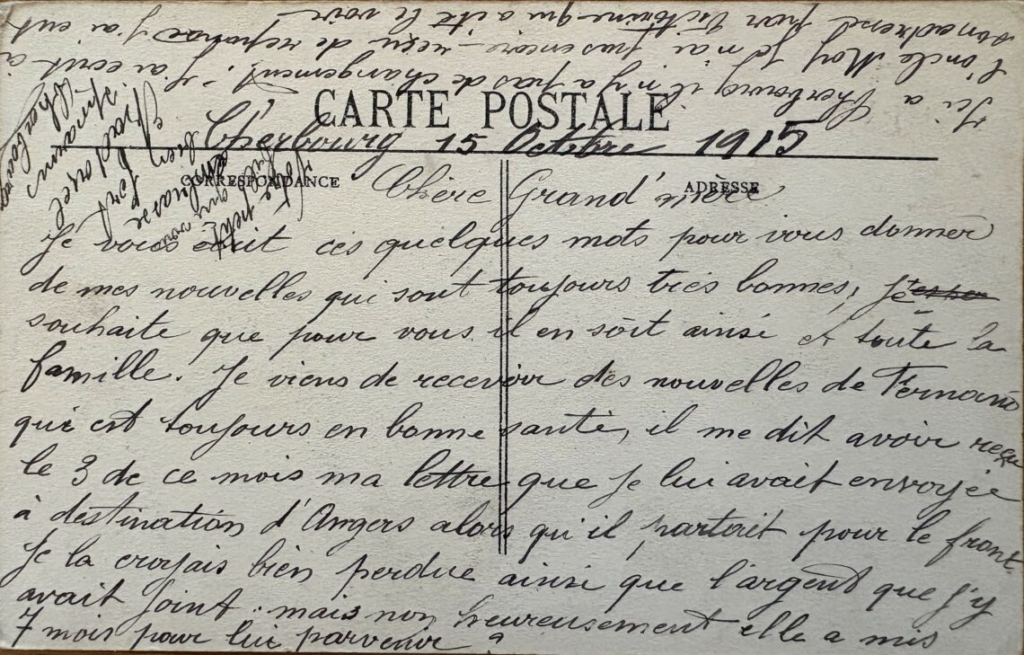 CARTE POSTALE
Cherbourg 15 Octobre 1915
CORRESPONDANCE
ADRESSE
Chère Grand'mère
Je vous écrit ces quelques mots pour vous donner
de mes nouvelles qui sont toujours très bonnes, je
souhaite que pour vous il en soit ainsi et toute la
famille. Je viens de recevoir des nouvelles de Fernand
qui est toujours en bonne santé, il me dit avoir reçu
le 3 de ce mois ma lettre que je lui avait envoyée
à destination d'Angers alors qu'il partait pour le front.
Je la croyais bien perdue ainsi que l'argent que j'y
avait joint. mais non heureusement elle a mis
7 mois pour lui parvenir
Ici a Cherbourg il n'y a pas de changement. j'ai ecrit a
l'oncle je n'ai pas encore reçu de reponse j'ai eut
son adresse par Victorine qui a été le voir
Votre petit
qui vous
embrasse
bien fort